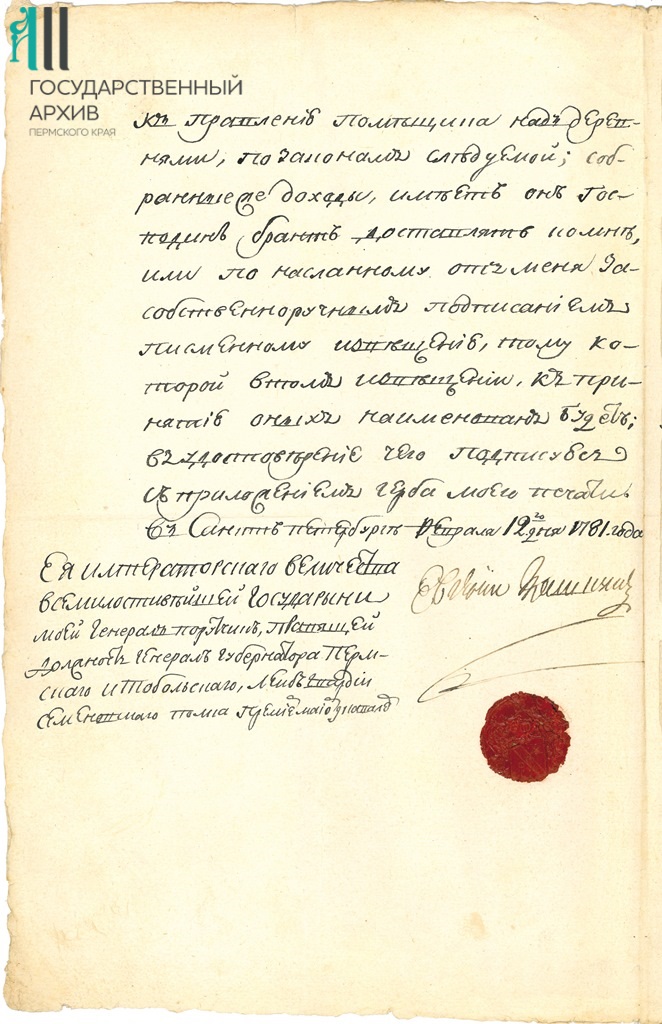 ГОСУДАРСТВЕННЫЙ
АРХИВ
ПЕРМСКОГО КРАЯ
къ правленію помѣщика надъ дерев-
нями, по законамъ слѣдуемой; соб-
ранные же доходы, имѣетъ онъ гос-
подинъ брантъ доставлять комнѣ,
или по насланному отъ меня за-
собственноручнымъ подписаніемъ
писменному извѣщенію, тому ко-
торой втомъ извѣщеніи, къ при-
нятію оныхъ наименованъ будетъ;
въ удостовѣреніе чего подписуюсь
съ приложеніемъ герба моего печати
въ Санктъ петербургѣ февраля 12го дня 1781. года
Евгеній Кашкинъ
ЕЯ ИМПЕРАТОРСКАГО ВЕЛИЧЕСТВА
ВСЕМИЛОСТИВѢЙШЕЙ ГОСУДАРЫНИ
моей Генералъ порутчикъ, правящей
должность генералъ губернатора Перм-
скаго и Тобольскаго, лейбъ гвардіи
семеновскаго полка премиеръ маіоръ